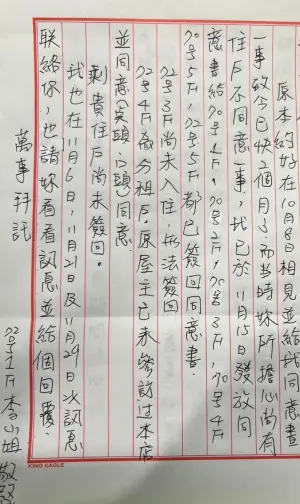 原本約好在10月8日相見並給我同意書
一事致今已快2個月了而當時妳所擔心尚有
住戶不同意一事,我已於11月15日發放同
意書給70号4F,70号2F,70号3F,70号4F
70号5F,72号5F都已簽回同意書.
72号3F尚未入住,無法簽回
72号4F為分租戶.原屋主已來參訪过本店
並同意(口頭)口頭同意.
剩貴住戶尚未簽回。
我也在11月6日,11月21日及11月29日次訊息
联絡你,也請妳看看訊息並給個回覆.
萬事拜託
72号1F 李小姐 敬啓
KING EAGLE